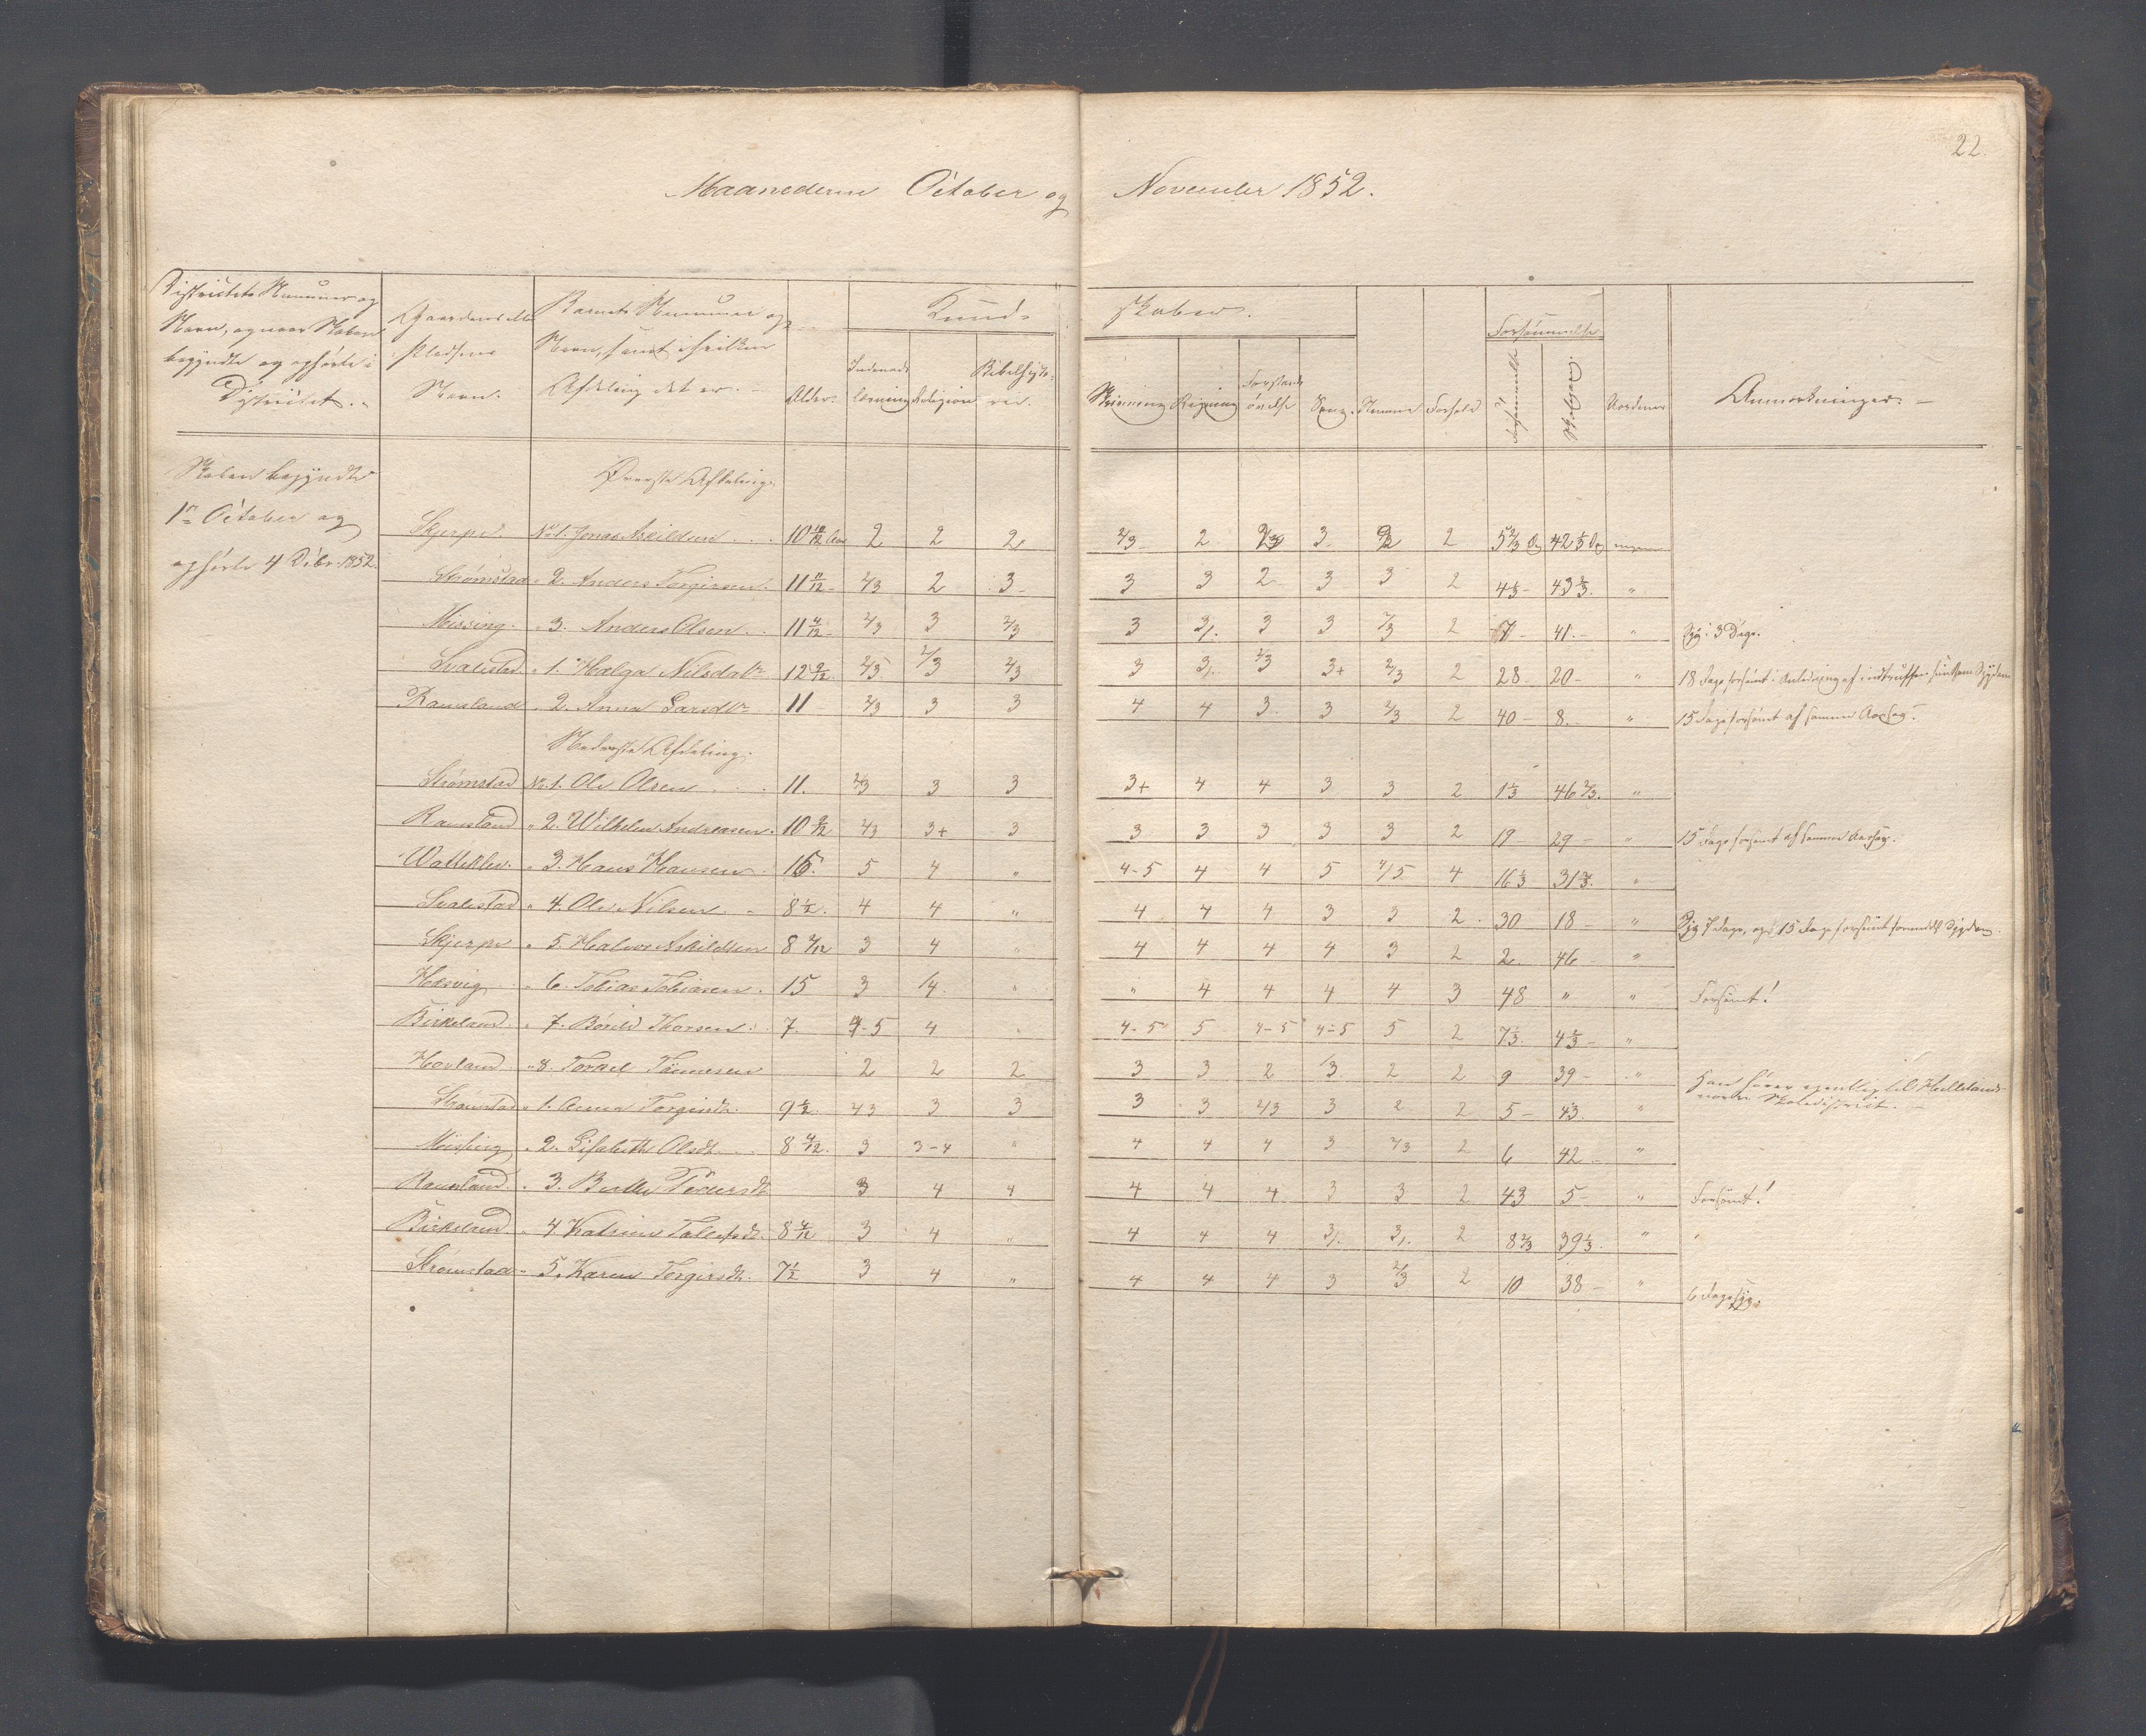 22.
Maanederne October og November 1852.
Districtets Nummer og
Navn, og naar Skolen
begyndte og ophørte i
Districtet.
Gaardens eller
Pladsens
Navn.
Barnets Nummer og
Navn, samt i hvilken
Afdeling det er.
Alder.
Kundskaber.
Indenads
læsning
Religion
Bibelhistorie
Skrivning
Regning
Forstands
øvelse
Sang.
Stemme
Forhold
Forsømmelse
Forsømmelse
Anmærkninger.
Skolen begyndte
1ste October og
ophørte 4 Dcbr. 1852.
Øverste Afdeling.
Skjerpe No 1. Jonas Askildsen 10 10/12 2 2 2 2/3 2 2/3 3 2 2 5 2/3 42 1/3
Strømstad " 2. Anders Torgirsen 11 11/12 2/3 2 3 3 3 2 3 3 2 4 1/3 43 2/3 "
Missing " 3. Anders Olsen 11 4/12 2/3 3 2/3 3 3/. 3 3 2/3 2 7 41 " Syg i 3 Dage.
Svalestad " 1. Helga Nilsdtr 12 2/12 2/3 2/3 2/3 3 3/. 2/3 3+ 2/3 2 28 20 " 18 Dage forsømt i Anledning af indtruffen smitsom Sygdom
Ramsland " 2. Anna Larsdtr 11 2/3 3 3 4 4 3 3 2/3 2 40 8 " 15 Dage forsømt af samme Aarsag.
Nederste Afdeling.
Strømstad No. 1. Ole Olsen 11. 2/3 3 3 3+ 4 4 3 3 2 1 1/3 46 2/3 "
Ramsland " 2. Wilhelm Andreasen 10 9/12 2/3 3+ 3 3 3 3 3 3 2 19 29 " 15 Dage forsømt af samme Aarsag.
" 3. Hans Hansen 15. 5 4 " 4-5 4 4 5 4/5 4 16 1/3 31 2/3 "
Svalestad " 4. Ole Nilsen 8 1/2 4 4 " 4 4 4 3 3 2 30 18 " Syg 7 Dage, og 15 Dage forsømt formedelst Sygdom.
Skjerpe " 5. Halvor Askildsen 8 2/12 3 4 " 4 4 4 4 3 2 2 46 "
Hæsvig " 6. Tobias Tobiasen 15 3 /4 " " 4 4 4 4 3 48 " " Forsømt!
Birkeland " 7. Børild Thorsen 7 4-5 4 4-5 5 4-5 4-5 5 2 7 1/3 4 2/3 "
Hovland " 8. Torkel Tønnesen 2 2 2 3 3 2 3 2 2 9 39 " Han hører egentlig til Hellelands nordre Skoledistrict.
Strømstad " 1. Anna Torgirsdtr. 9 1/2 2/3 3 3 3 3 2/3 3 2 2 5 43 "
Missing " 2. Elisabeth Olsdtr. 8 4/12 3 3-4 " 4 4 4 3 2/3 2 6 42 "
Ramsland " 3. Berthe Pedersdtr 3 4 4 4 4 4 3 3 2 43 5 " Forsømt!
Birkeland " 4. Katrine Tollefsdtr. 8 4/12 3 4 " 4 4 4 3/. 3/. 2 8 2/3 39 1/3 " "
Strømstad " 5. Karen Torgirsdtr. 7 1/2 3 4 " 4 4 4 3 2/3 2 10 38 " 6 Dage syg.